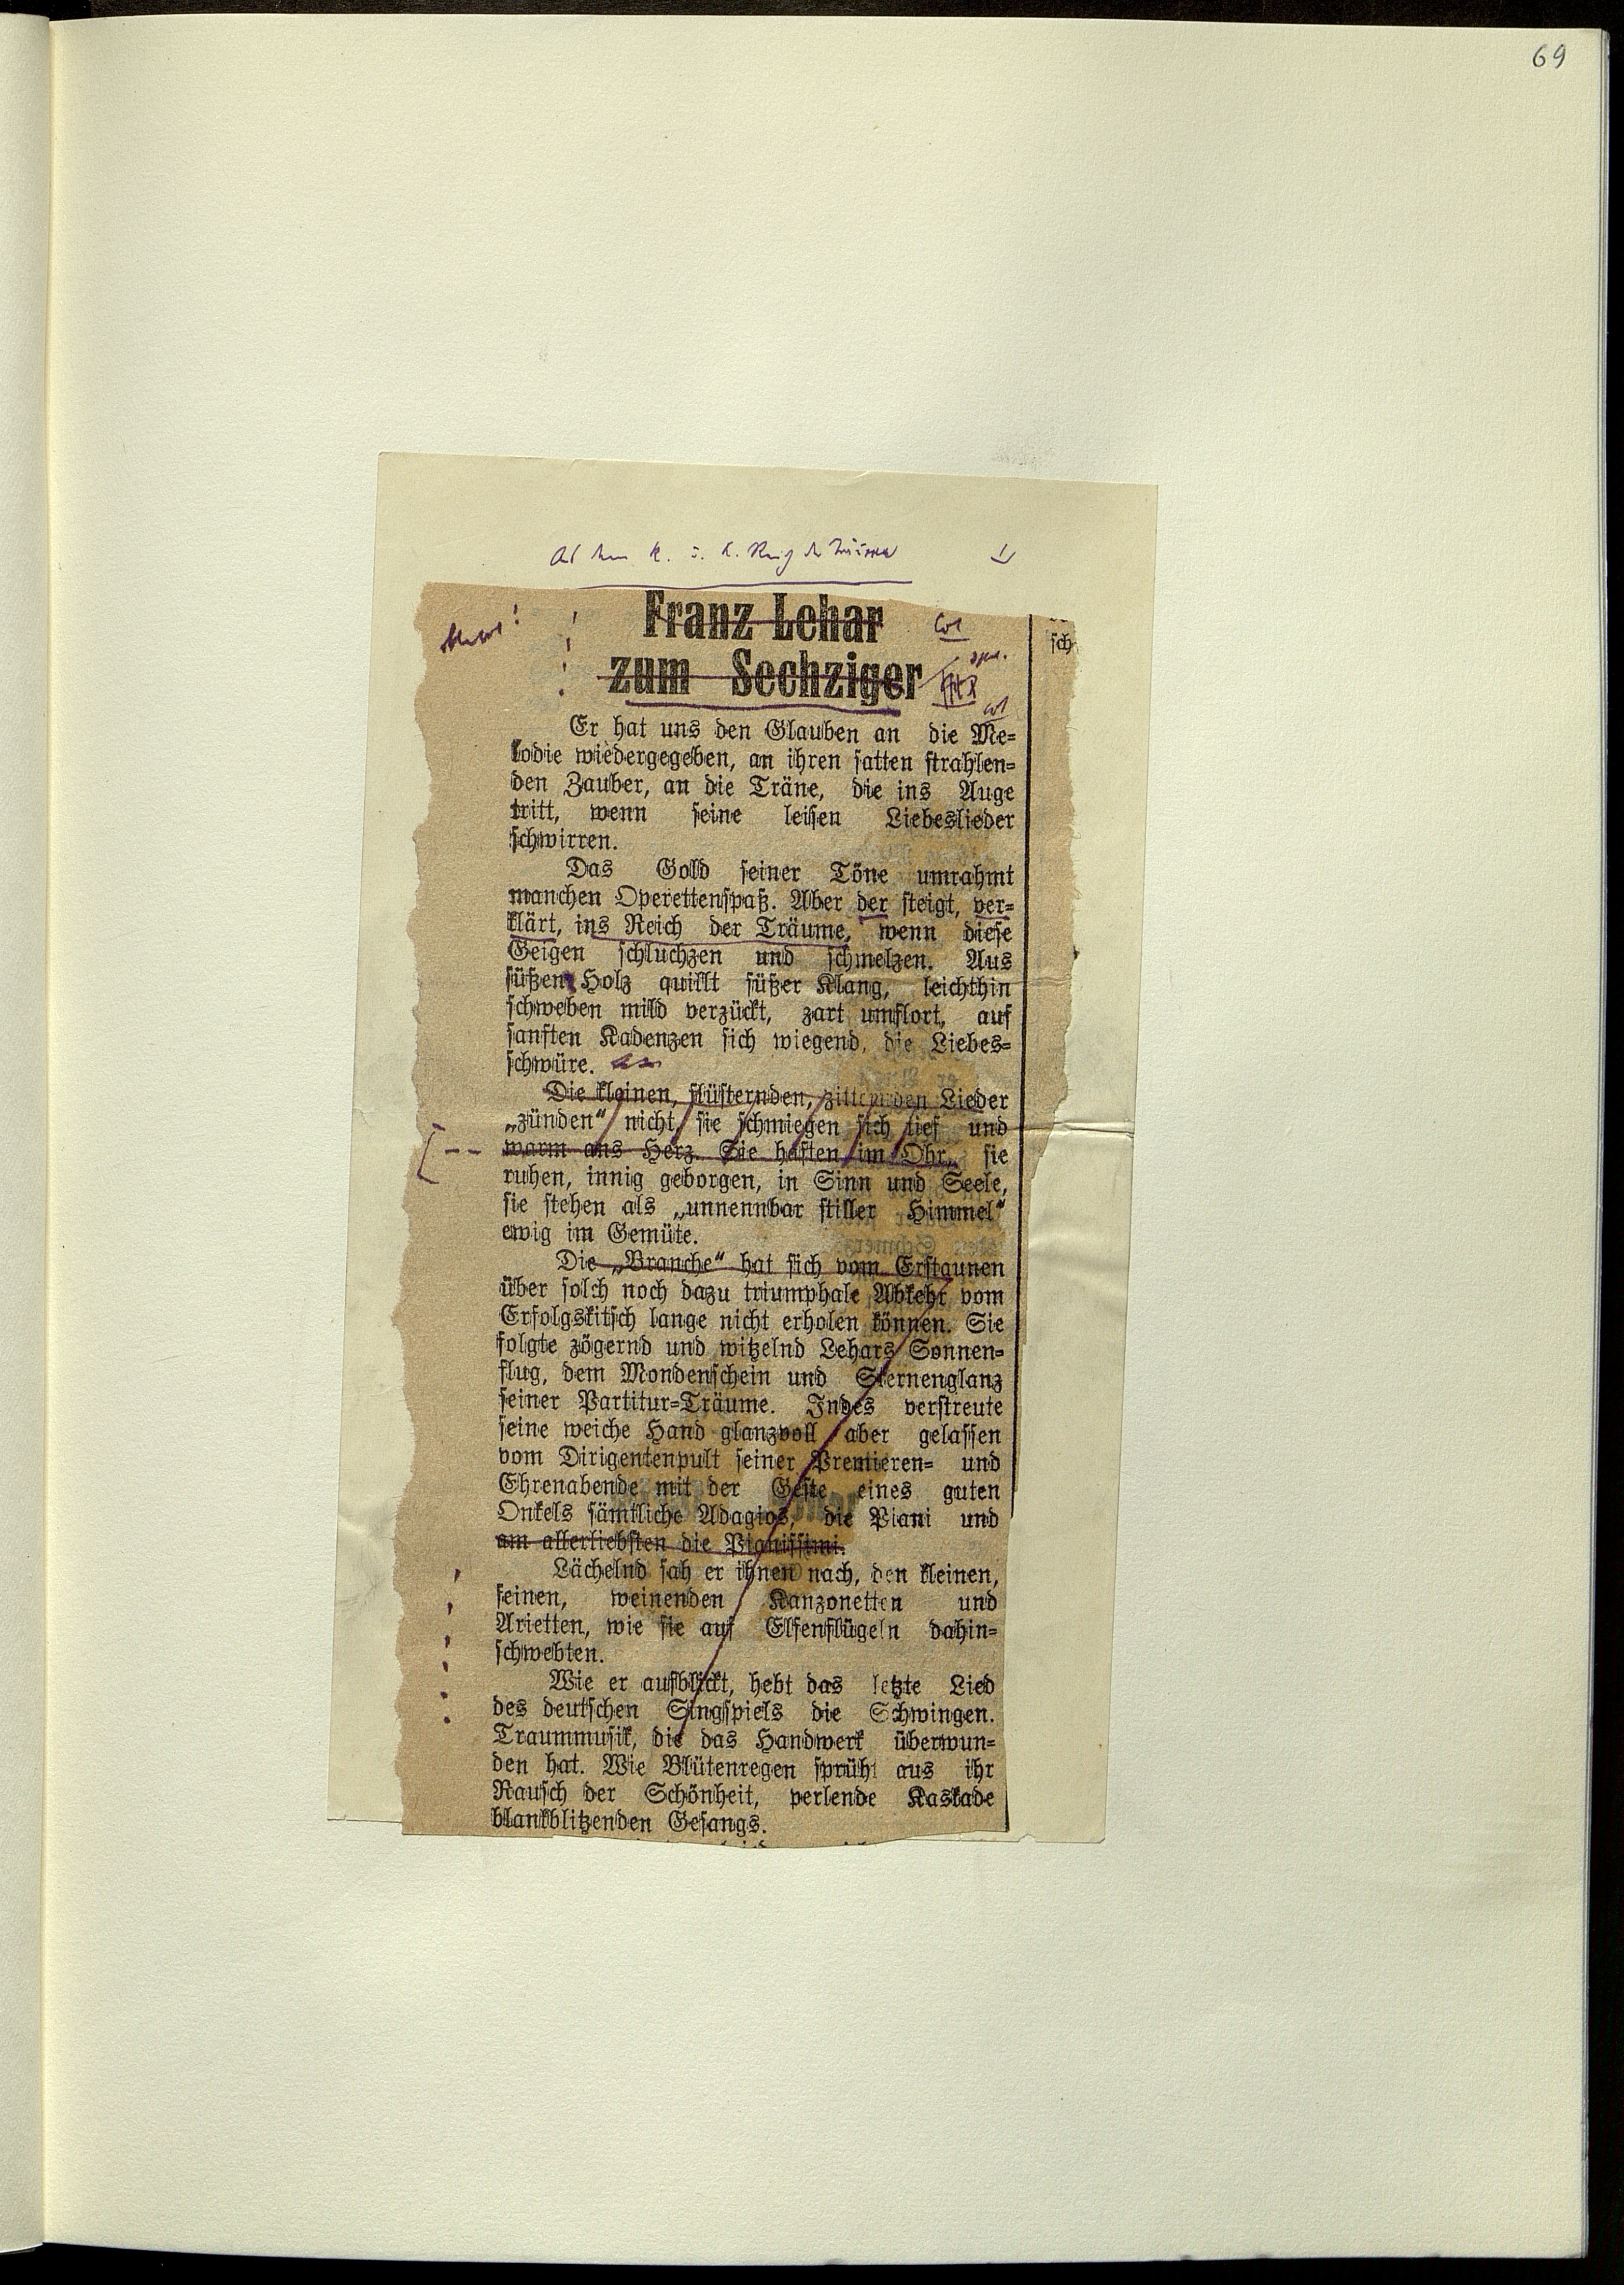 69
Franz Lehar
zum Sechziger
sch
Er hat uns den Glauben an die Me-
lodie wiedergegeben, an ihren satten strahlen-
den Zauber, an die Träne, die ins Auge
tritt, wenn seine leisen Liebeslieder
schwirren.
Das Gold seiner Töne umrahmt
manchen Operettenspaß. Aber der steigt, ver-
klärt, ins Reich der Träume, wenn diese
Geigen schluchzen und schmelzen. Aus
süßem Holz quillt süßer Klang, leichthin
schweben mild verzückt, zart umflort, auf
sanften Kadenzen sich wiegend, die Liebes-
schwüre.
Die kleinen, flüsternden, zitternden Lieder
„zünden“ nicht, sie schmiegen sich tief und
warm ans Herz. Sie haften im Ohr, sie
ruhen, innig geborgen, in Sinn und Seele,
sie stehen als „unnennbar stiller Himmel“
ewig im Gemüte.
Die „Branche“ hat sich vom Erstaunen
über solch noch dazu triumphale Abkehr vom
Erfolgskitsch lange nicht erholen können. Sie
folgte zögernd und witzelnd Lehars Sonnen-
flug, dem Mondenschein und Sternenglanz
seiner Partitur-Träume. Indes verstreute
seine weiche Hand glanzvoll aber gelassen
vom Dirigentenpult seiner Premieren- und
Ehrenabende mit der Geste eines guten
Onkels sämtliche Adagios, die Piani und
am allerliebsten die Pianissimi.
Lächelnd sah er ihnen nach, den kleinen,
feinen, weinenden Kanzonetten und
Arietten, wie sie auf Elfenflügeln dahin-
schwebten.
Wie er aufblickt, hebt das letzte Lied
des deutschen Singspiels die Schwingen.
Traummusik, die das Handwerk überwun-
den hat. Wie Blütenregen sprüht aus ihr
Rausch der Schönheit, perlende Kaskade
blankblitzenden Gesangs.